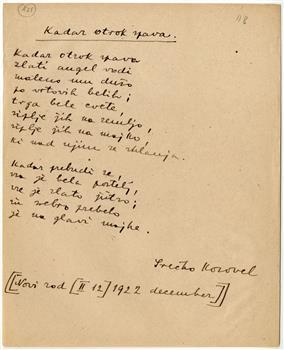 121
118
Kadar otrok spava.
Kadar otrok spava
zlati angel vodi
maleno mu dušo
po vrtovih belih;
trga bele cvete,
siplje jih na zemljo,
siplje jih na majko,
ki nad njim se sklanja.
Kadar prebudi se,
vsa je bela postelj,
vse je zlato jutro;
in srebro prebelo
je na glavi majke.
Srečko Kosovel
[Novi rod [II 12] 1922 december]